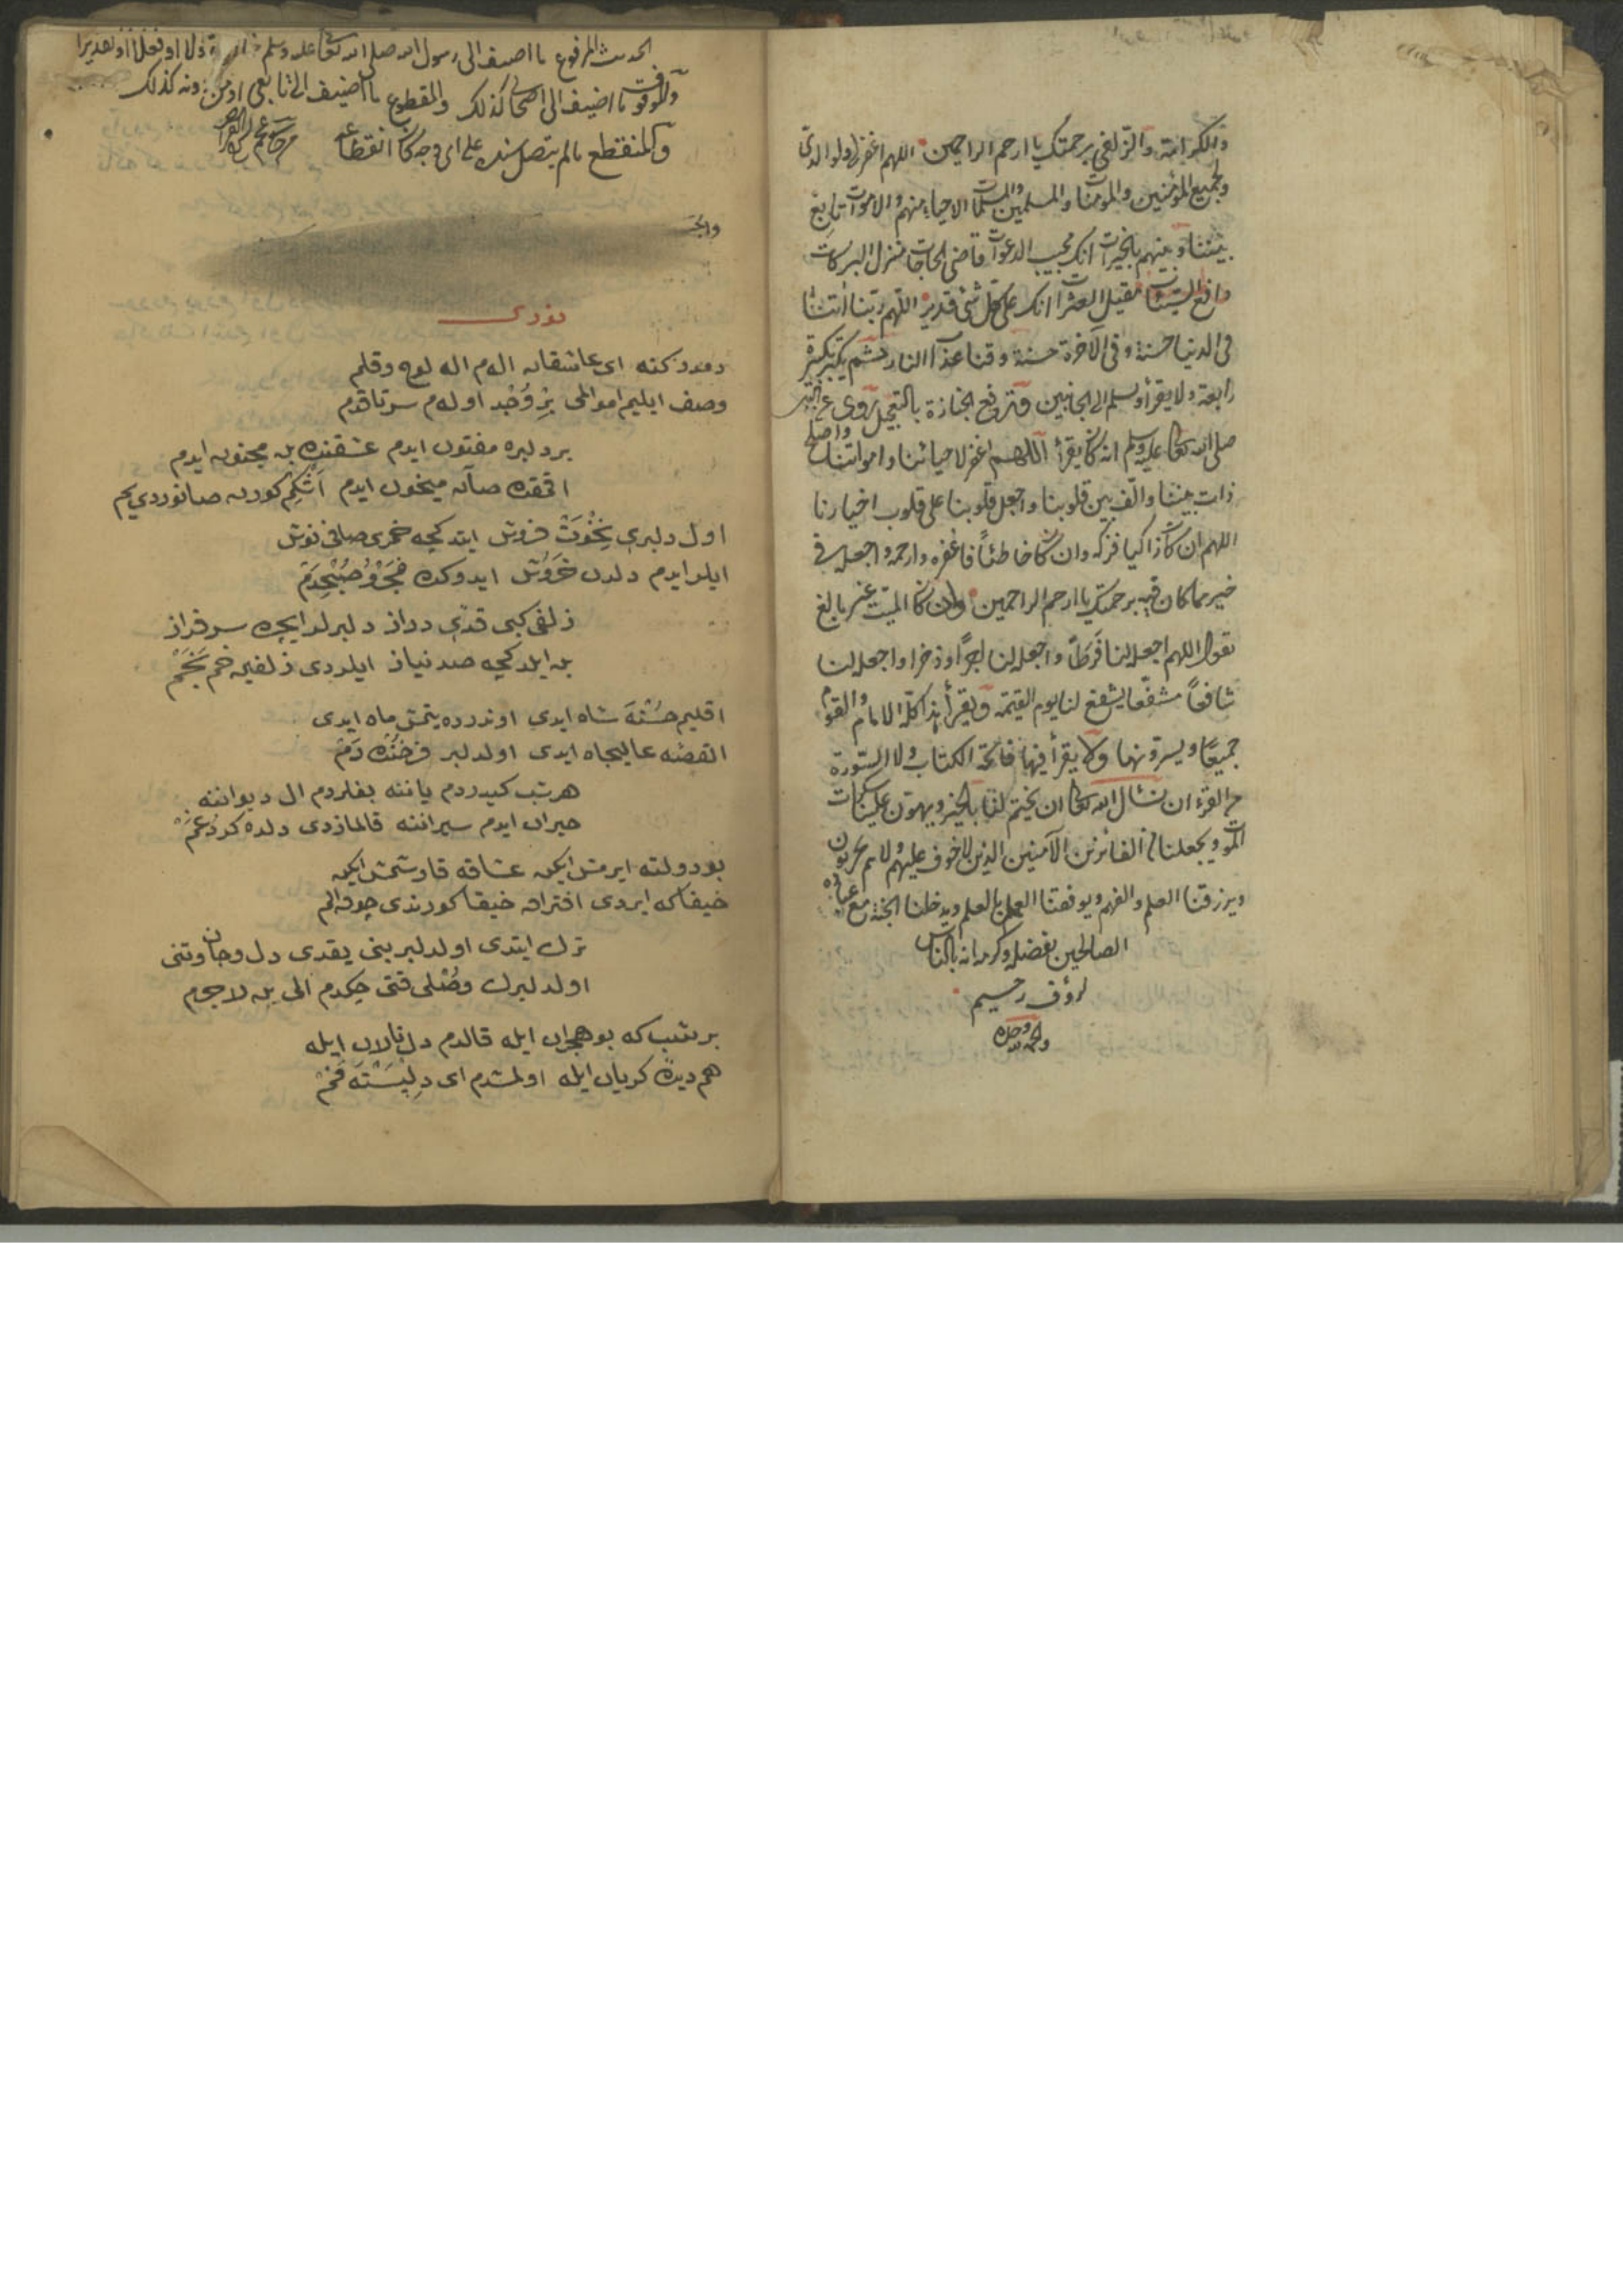 والكرامة والزلفى برحمتك يا ارحم الراحمين اللهم اغفر لى ولوالدى
ولجميع المؤمنين والمؤمنات والمسلمين والمسلمات الاحياء منهم والاموات تابع
بيننا وبينهم بالخيرات انك مجيب الدعوات قاضى الحاجات منزل البركات
دافع السيئات مقيل العثرات انك على كل شئ قدير اللهم ربنا آتنا
فى الدنيا حسنة وفى الآخرة حسنة وقنا عذاب النار ثم يكبر تكبيرة
رابعة ولا يقرأ ويسلم الى الجانبين وترفع الجنازة بالتعجيل روى عن النبى
صلى الله تعالى عليه وسلم انه كان يقرأ اللهم اغفر لاحيائنا وامواتنا واصلح
ذات بيننا والف بين قلوبنا واجعل قلوبنا على قلوب اخيارنا
اللهم ان كان زاكيا فزكه وان كان خاطئاً فاغفره وارحمه واجعله فى
خير مما كان فيه برحمتك يا ارحم الراحمين وان كان الميت غير بالغ
تقول اللهم اجعله لنا فرطاً واجعله لنا اجراً وذخرا واجعله لنا
شافعاً مشفعا يشفع لنا يوم القيمة ويقرأ هذا كله الامام والقوم
جميعًا ويسرونها ولا يقرأ فيها فاتحة الكتاب ولا السورة
من القرءان نسأل الله تعالى ان يختم لنا بالخير ويهون علينا سكرات
الموت ويجعلنا من الفائزين الآمنين الذين لا خوف عليهم ولا هم يحزنون
ويرزقنا العلم والفهم ويوفقنا العمل بالعلم ويدخلنا الجنة مع عباده
الصالحين بفضله وكرمه انه بالناس
لرؤف رحيم
والحمد لله وحده
الحديث المرفوع ما اضيف الى رسول الله صلى الله تعالى عليه وسلم قولا او فعلا او تقديرا
والموقوف ما اضيف الى الصحابى كذلك والمقطوع ما اضيف الى تابعى او من دونه كذلك
والمنقطع ما لم يتصل سنده على اى وجه كان انقطاعه
نوردى
اى عاشقانه الهم اله لوح وقلم
وصف ايليم احوالمى بر وجد اولهم سر تا قدم
بر دلبره مفتون ايدم عشقنده بن مجنون ايدم
صانه ميخون ايدم اشكم كورن صانوردى يم
اول دلبرى نخوت فروش ايتد كچه خمرى صافى نوش
ايلر ايدم دلدن خروش ايدوكده فجر و صبحدم
زلفى كبى قدى دراز دلبرلر ايچره سرفراز
بن ايلدكچه صد نياز ايلردى زلفين خم بخم
اقليم حسنه شاه ايدى اوندرده يتمش ماه ايدى
القصه عاليجاه ايدى اول دلبر فرخنده دم
هر شب كيدردم ياننه بغلردم ال ديواننه
حيران ايدم سيراننه قالمازدى دلده كرد غم
بو دولته ايرمش ايكن عشاقه قارشمش ايكن
حيفا كه ايردى افتراق حيفا كورندى چوق الم
ترك ايتدى اول دلبر بنى يقدى دل وجان وتنى
اول دلبرك وصلى قنى چكدم الى بن لاجرم
بر شب كه بو هجران ايله قالدم دل نالان ايله
هم ديده كريان ايله اولمشدم اى دلبسته فخم